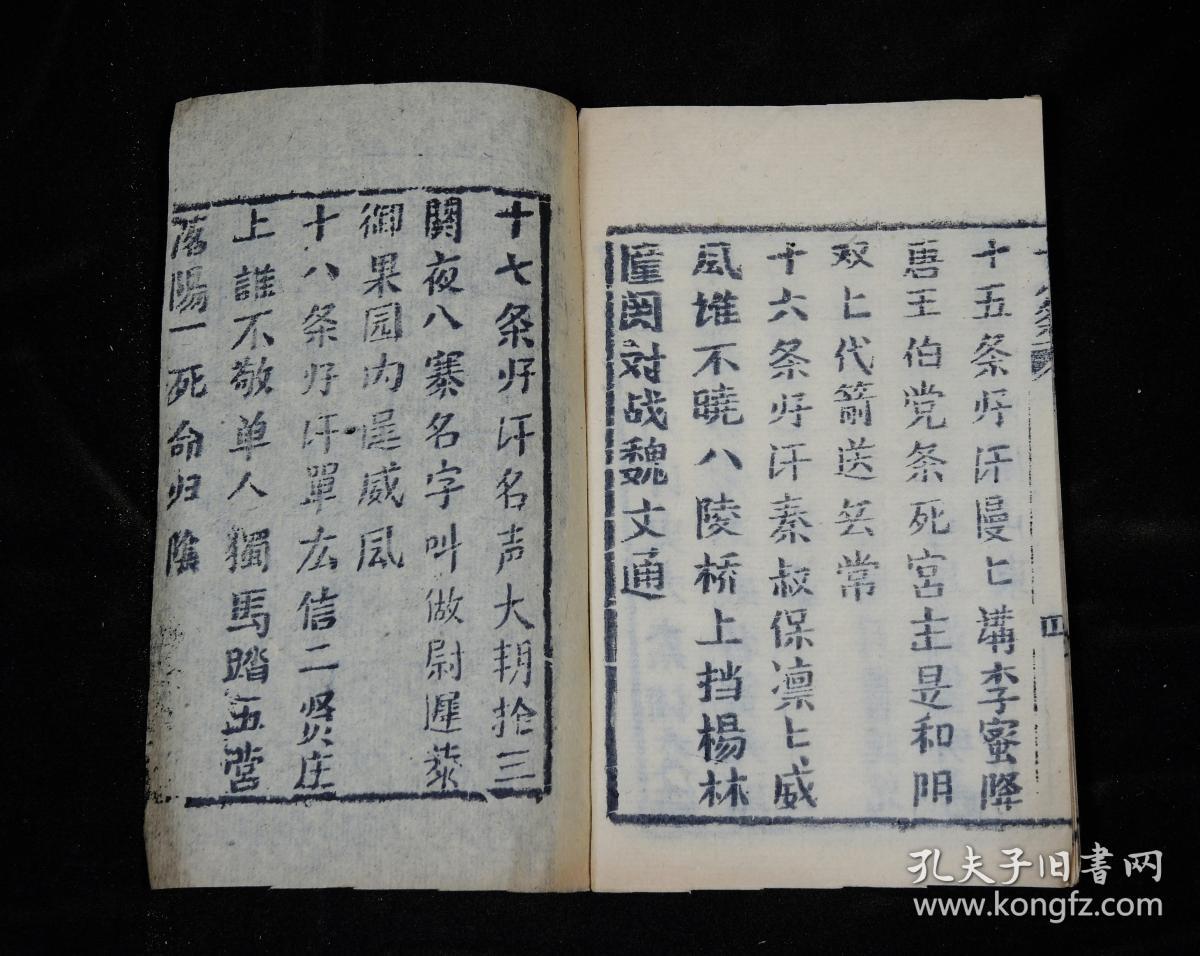 十五条好汗慢〻講李蜜降
唐王伯党条死宮主是和阴
双〻代箭送兴常
十六条好汗秦叔保凛〻威
凤谁不曉八陵桥上挡楊林
潼関対战魏文通
四
十七条好汗名声大朝抢三
関夜八寨名字叫做尉遲恭
御果园内逞威凤
十八条好汗單厷信二贤庄
上誰不敬单人獨馬踏五营
落陽一死命归陰
孔夫子旧书网
www.kongfz.com